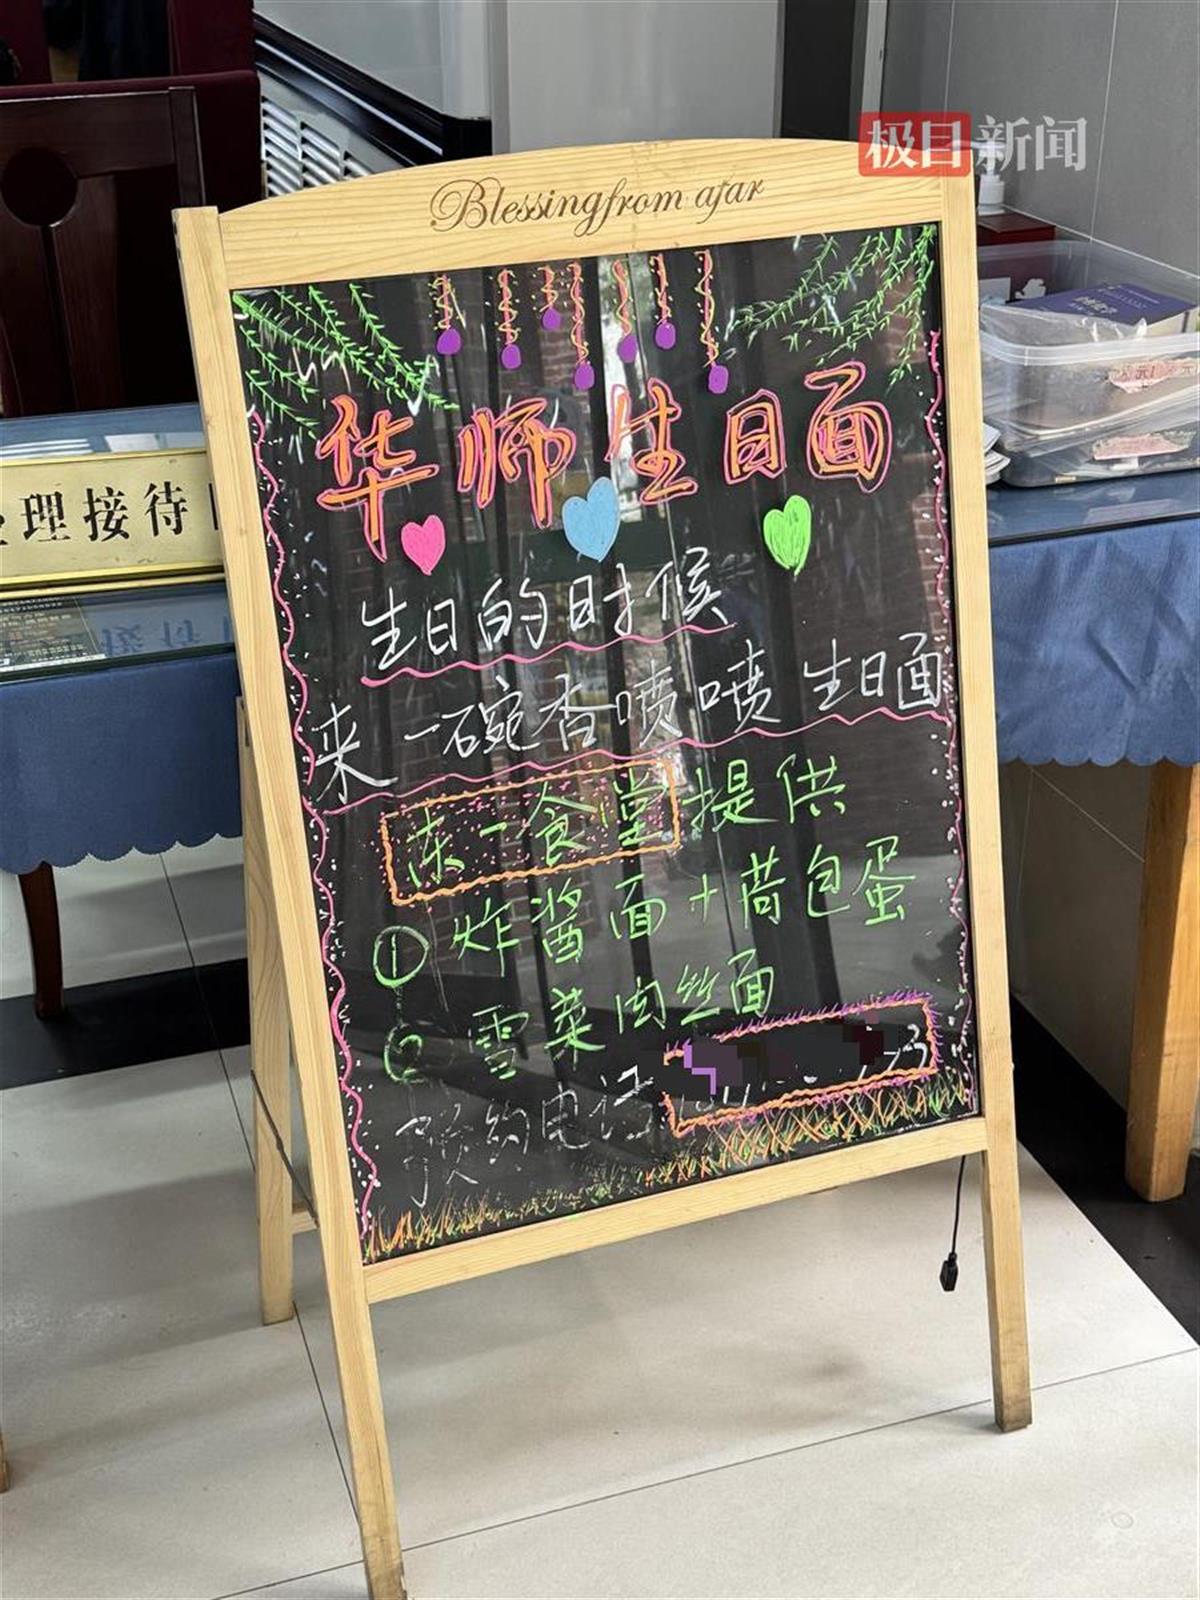 极目新闻
Blessingfrom afar
华师生日面
生日的时候
来一碗香喷喷生日面
东一食堂提供
① 炸酱面+荷包蛋
② 雪菜肉丝面
预约电话
理接待